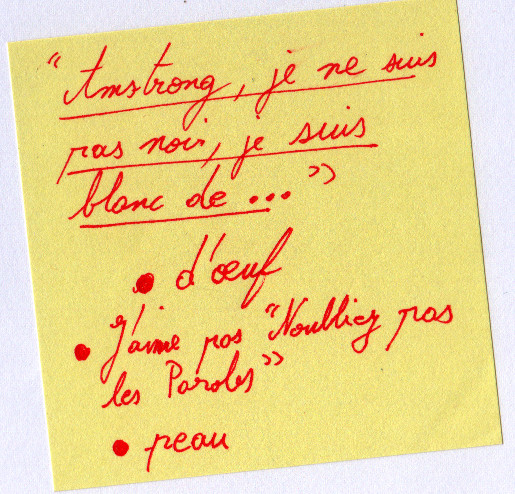 “Amstrong, je ne suis
pas noir, je suis
blanc de ...”
• d'œuf
• J'aime pas “Noubliez pas
les Paroles”
• peau